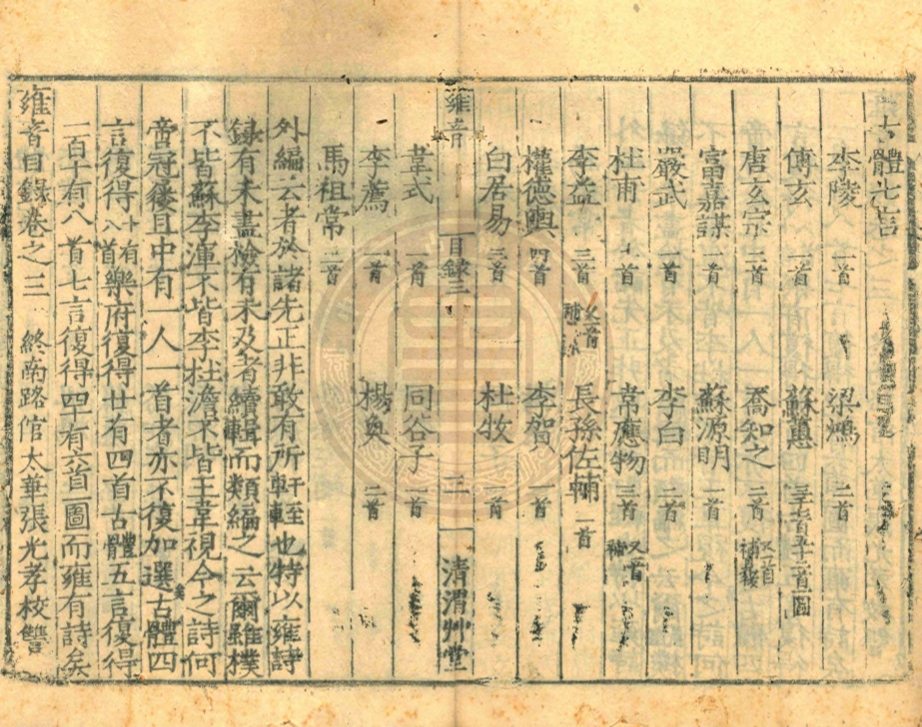 古體七言
李陵 一首 梁鴻 二首
傅玄 一首 蘇蕙
唐玄宗 三首 喬知之 二首
富嘉謨 一首 蘇源明 二首
嚴武 一首 李白 二首
杜甫 韋應物 三首 又一首補
李益 三首 長孫佐輔 一首
權德輿 四首 李賀 一首
白居易 三首 杜牧 一首
雍音 目錄三 三 清渭艸堂
韋式 一首 同谷子 一首
李廌 一首 楊奐 二首
馬祖常 三首
外編云者於諸先正非敢有所軒輊也特以雍詩
錄有未盡檢有未及者續輯而類編之云爾雖樸
不皆蘇李渾不皆李杜澹不皆王韋視今之詩何
啻冠屨且中有一人一首者亦不復加選古體四
言復得十有八首樂府復得廿有四首古體五言復得
一百十有八首七言復得四十有六首一圖而雍有詩矣
雍音目錄卷之三 終南路倌太華張光孝校讐